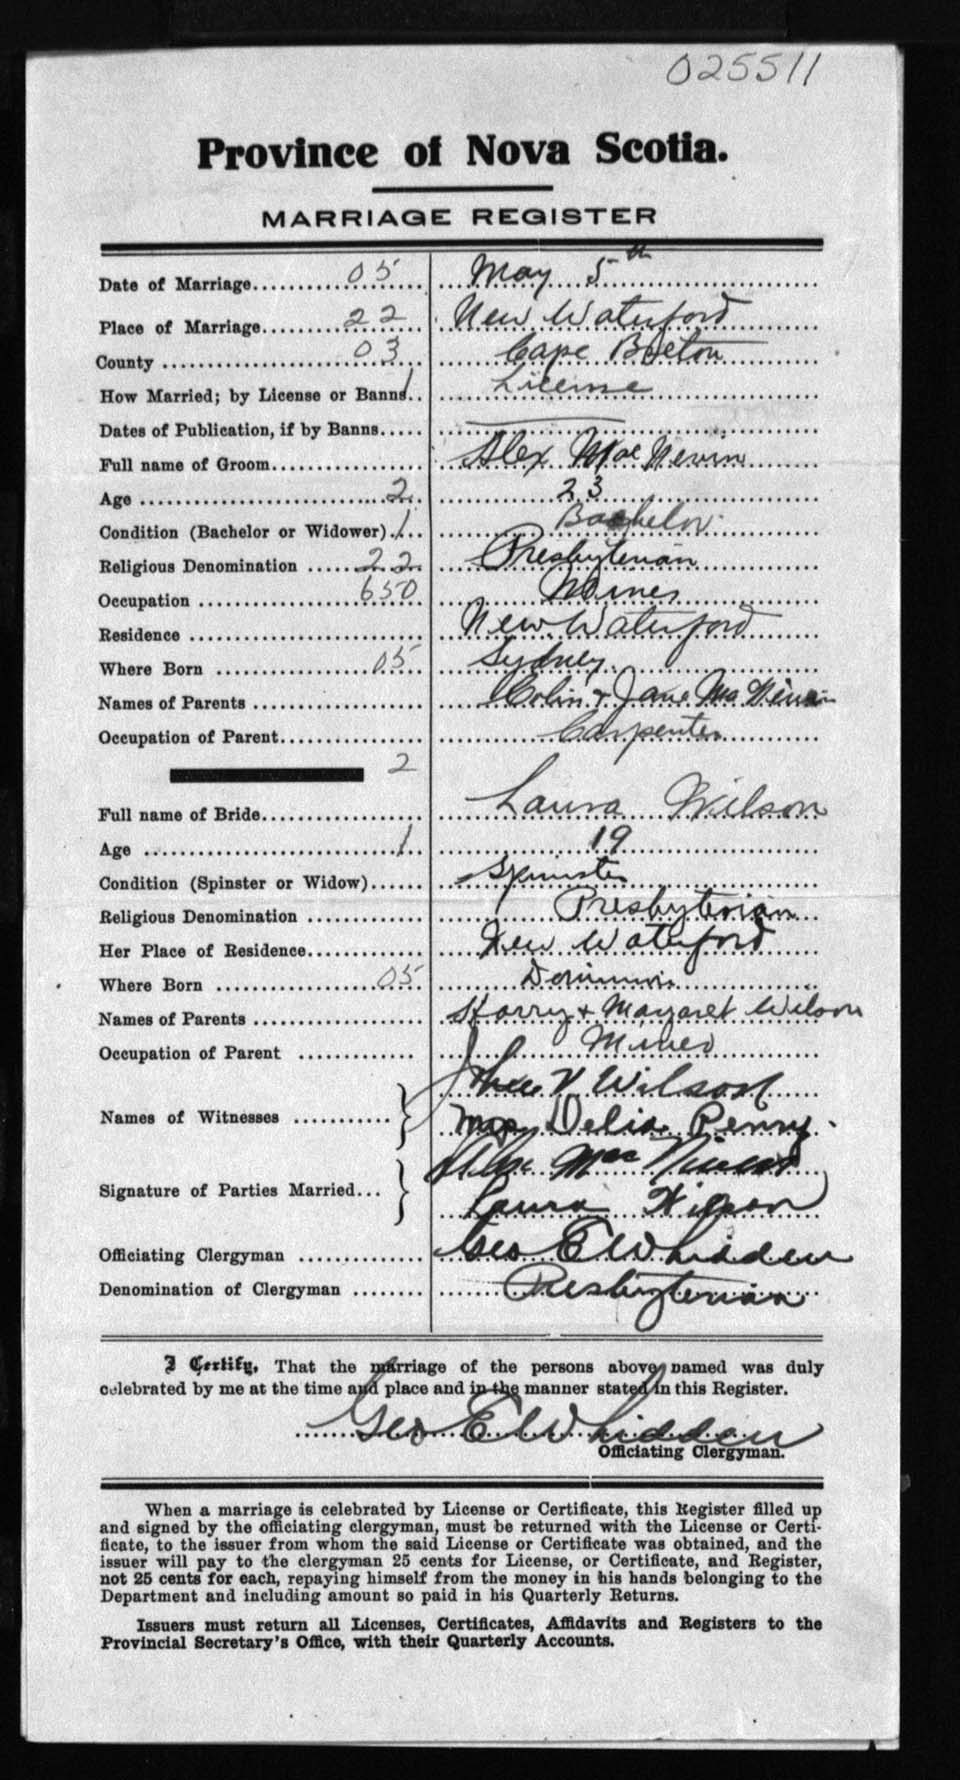 025511
Province of Nova Scotia.
MARRIAGE REGISTER
Date of Marriage 05 May 5th
Place of Marriage 22 New Waterford
County 03 Cape Breton
How Married; by License or Banns 1 License
Dates of Publication, if by Banns
Full name of Groom Alex MacNevin
Age 2 23
Condition (Bachelor or Widower) 1 Bachelor
Religious Denomination 22 Presbyterian
Occupation 650 Miner
Residence New Waterford
Where Born 05 Sydney
Names of Parents Colin & Jane
Occupation of Parent Carpenter
2
Full name of Bride Laura Wilson
Age 1 19
Condition (Spinster or Widow) Spinster
Religious Denomination Presbyterian
Her Place of Residence New Waterford
Where Born 05 Dominion
Names of Parents Harry & Margaret Wilson
Occupation of Parent Miner
V Wilson
Names of Witnesses
Delia Penny
Mac
Signature of Parties Married
Laura Wilson
Officiating Clergyman Geo E Whidden
Denomination of Clergyman Presbyterian
I Certify, That the marriage of the persons above named was duly
celebrated by me at the time and place and in the manner stated in this Register.
Geo E Whidden
Officiating Clergyman.
When a marriage is celebrated by License or Certificate, this Register filled up
and signed by the officiating clergyman, must be returned with the License or Certi-
ficate, to the issuer from whom the said License or Certificate was obtained, and the
issuer will pay to the clergyman 25 cents for License, or Certificate, and Register,
not 25 cents for each, repaying himself from the money in his hands belonging to the
Department and including amount so paid in his Quarterly Returns.
Issuers must return all Licenses, Certificates, Affidavits and Registers to the
Provincial Secretary's Office, with their Quarterly Accounts.